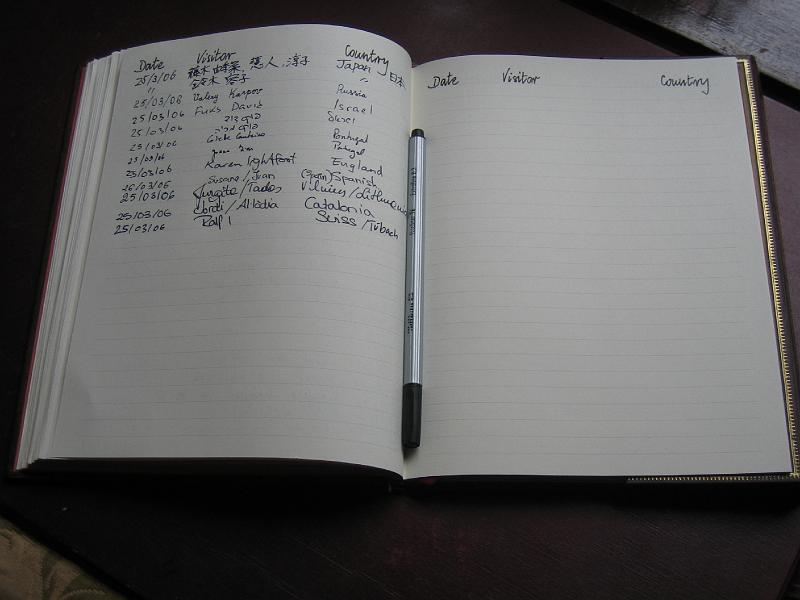 Date Visitor Country
25/3/06 由、人、淳子 Japan 日本
〃 鈴木 子 〃
25/03/06 Valery Karpov Russia
25/03/06 Fuks David Israel
25/03/06
25/03/06 Portugal
25/03/06 Portugal
25/03/06 Karen Lightfoot England
26/03/06 Susana / Ivan (Spain) Spanish
25/03/06 Jurgita / Tadas Vilnius / Lithuania
25/03/06 Jordi / Catalonia
25/03/06 Ralf Suiss /
Date Visitor Country